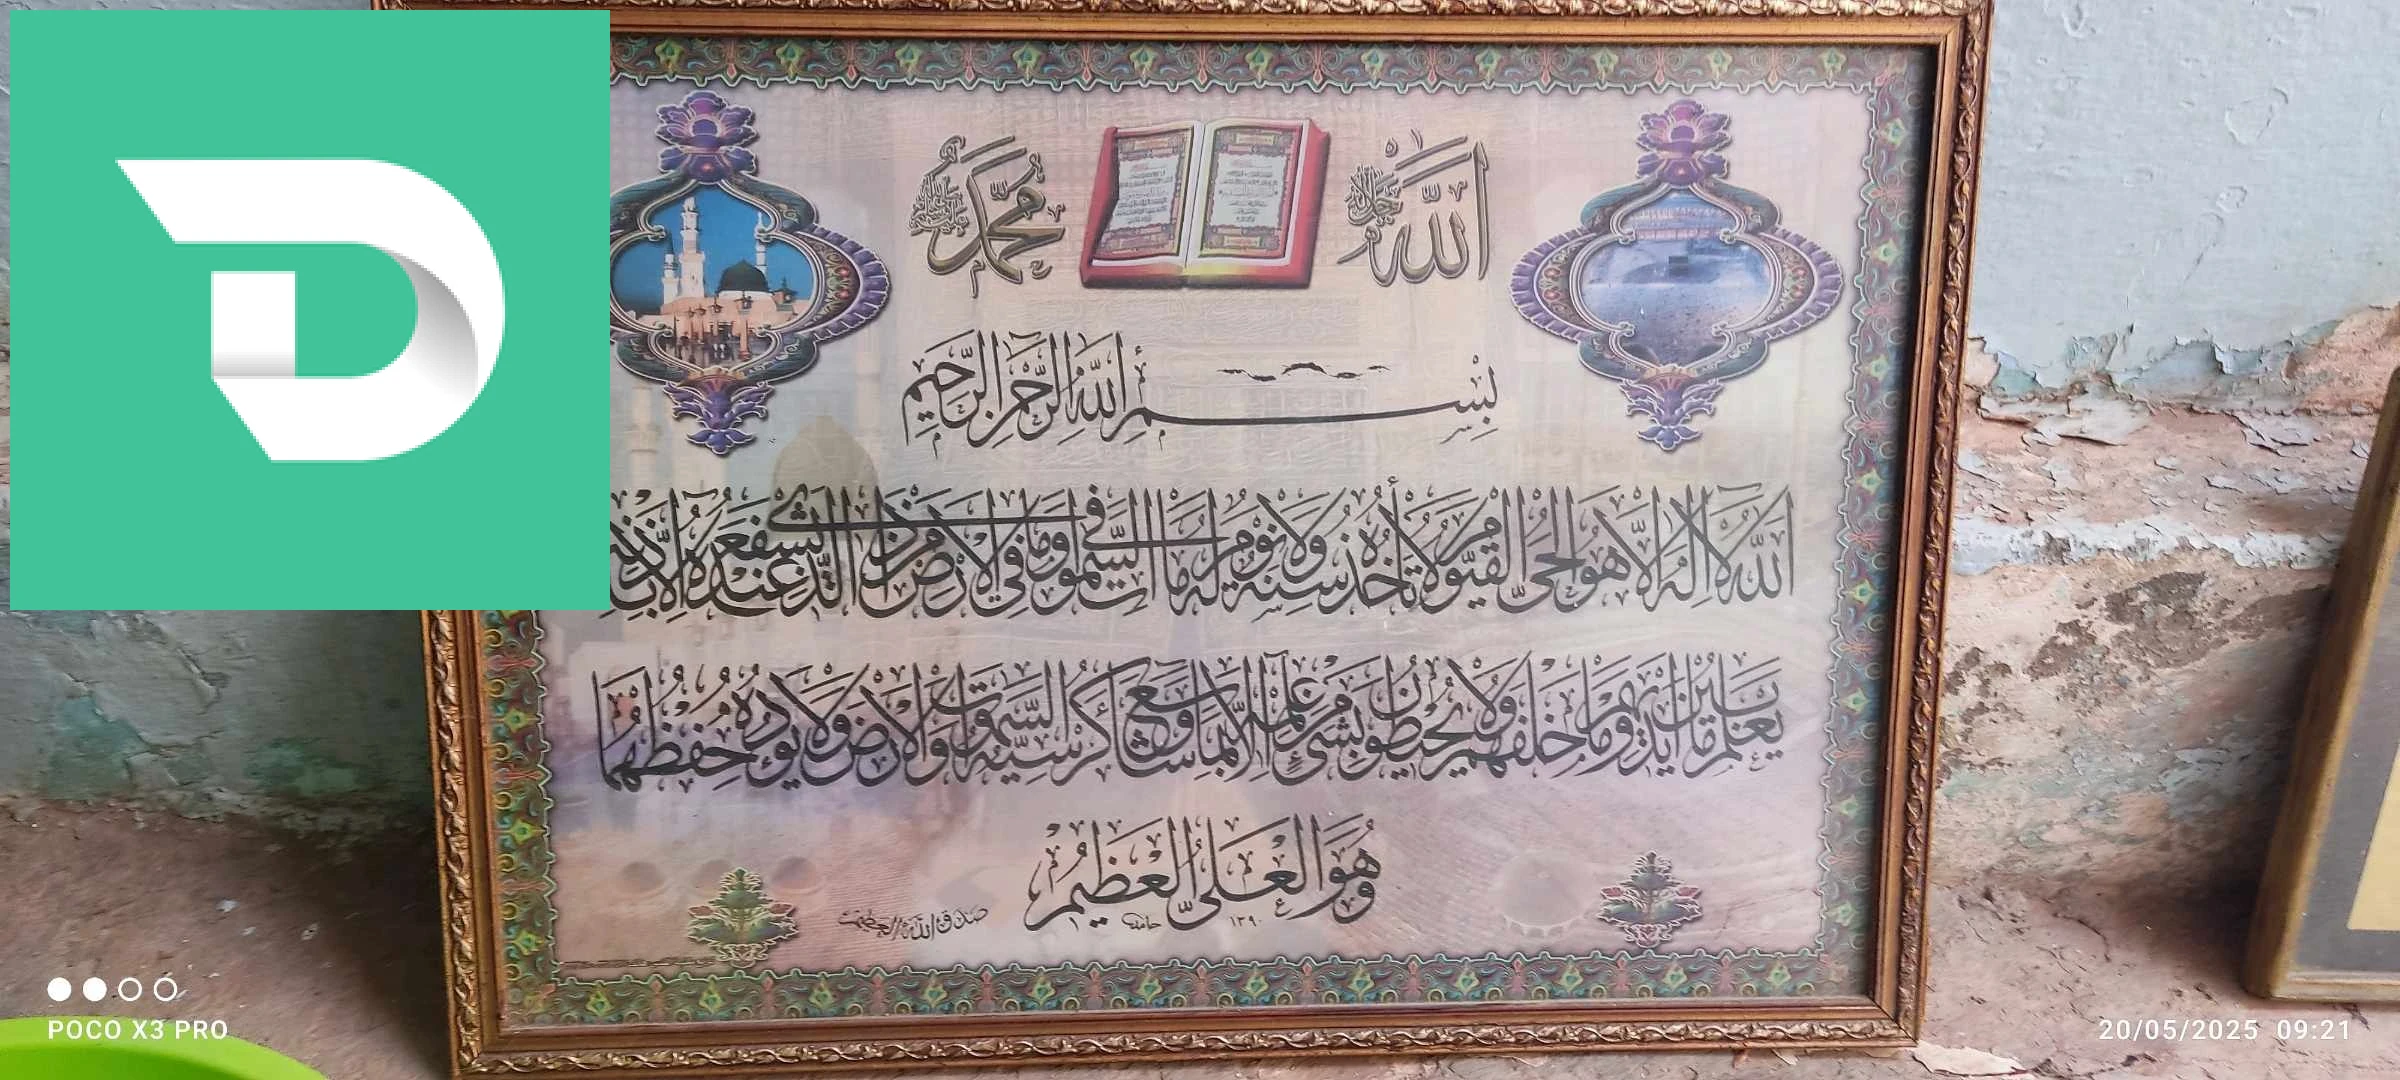 الله جل جلاله
محمد
بِسْمِ اللهِ الرَّحْمٰنِ الرَّحِيمِ
اللهُ لَا إِلٰهَ إِلَّا هُوَ الْحَيُّ الْقَيُّومُ لَا تَأْخُذُهُ سِنَةٌ وَلَا نَوْمٌ لَهُ مَا فِي السَّمٰوَاتِ وَمَا فِي الْأَرْضِ مَنْ ذَا الَّذِي يَشْفَعُ عِنْدَهُ إِلَّا بِإِذْنِهِ
يَعْلَمُ مَا بَيْنَ أَيْدِيهِمْ وَمَا خَلْفَهُمْ وَلَا يُحِيطُونَ بِشَيْءٍ مِنْ عِلْمِهِ إِلَّا بِمَا شَاءَ وَسِعَ كُرْسِيُّهُ السَّمٰوَاتِ وَالْأَرْضَ وَلَا يَؤُدُهُ حِفْظُهُمَا
وَهُوَ الْعَلِيُّ الْعَظِيمُ
١٣٩٠ حامد
صدق الله العظيم
POCO X3 PRO
20/05/2025 09:21